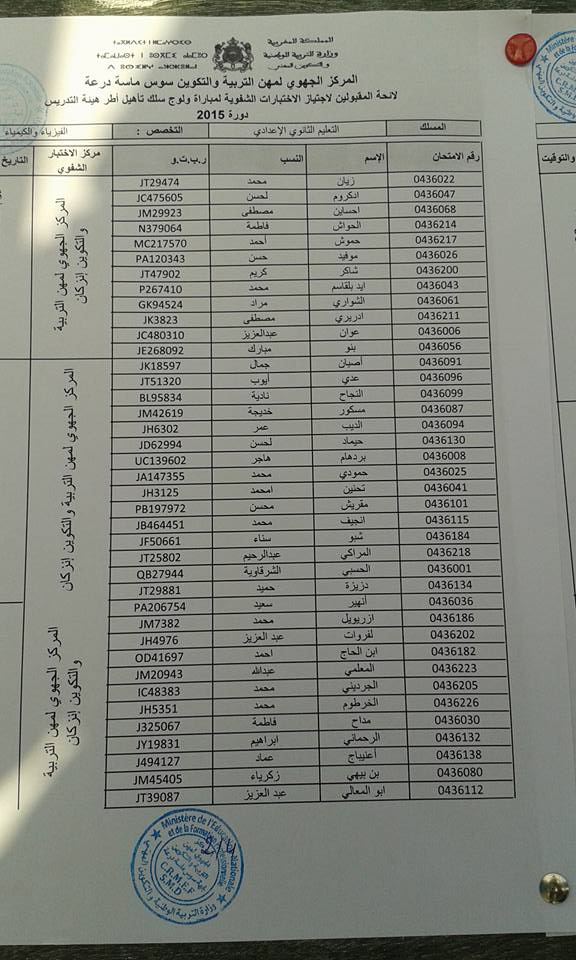 المملكة المغربية
وزارة التربية الوطنية
والتكوين المهني
المركز الجهوي لمهن التربية والتكوين سوس ماسة درعة
لائحة المقبولين لاجتياز الاختبارات الشفوية لمباراة ولوج سلك تأهيل أطر هيئة التدريس
دورة 2015
المسلك التعليم الثانوي الإعدادي التخصص : الفيزياء والكيمياء
رقم الامتحان الإسم النسب ر.ب.ت.و مركز الاختبار الشفوي التاريخ
0436022 زيان محمد JT29474
0436047 ادكروم لحسن JC475605
0436068 احساين مصطفى JM29923
0436214 الحواش فاطمة N379064
0436217 حموش أحمد MC217570
0436026 موفيد حسن PA120343
0436200 شاكر كريم JT47902
0436043 ايد بلقاسم محمد P267410
0436061 الشواري مراد GK94524
0436211 ادريري مصطفى JK3823
0436006 عوان عبدالعزيز JC480310
0436056 بنو مبارك JE268092
المركز الجهوي لمهن التربية
والتكوين إنزكان
0436091 أصبان جمال JK18597
0436096 عدي أيوب JT51320
0436099 النجاح نادية BL95834
0436087 مسكور خديجة JM42619
0436094 الديب عمر JH6302
0436130 حيماد لحسن JD62994
0436008 بردهام هاجر UC139602
0436025 حمودي محمد JA147355
0436041 تحنين امحمد JH3125
0436101 مقريش محسن PB197972
0436115 انجيف محمد JB464451
0436184 شبو سناء JF50661
0436218 المراكي عبدالرحيم JT25802
0436001 الحسبي الشرقاوية QB27944
المركز الجهوي لمهن التربية والتكوين إنزكان
0436134 دزيزة حميد JT29881
0436036 أنهير سعيد PA206754
0436186 ازريويل محمد JM7382
0436202 لفروات عبد العزيز JH4976
0436182 ابن الحاج احمد OD41697
0436223 المعلمي عبدالله JM20943
0436205 الجرديني محمد IC48383
0436226 الخرطوم محمد JH5351
0436030 مداح فاطمة J325067
0436132 الرحماني ابراهيم JY19831
0436138 أعنيباج عماد J494127
0436080 بن بيهي زكرياء JM45405
0436112 ابو المعالي عبد العزيز JT39087
المركز الجهوي لمهن التربية
والتكوين إنزكان
Ministère de l'Education Nationale
et de la Formation Professionnelle
C.R.M.E.F
S.M.D
وزارة التربية الوطنية والتكوين المهني
والتوقيت
Ministère